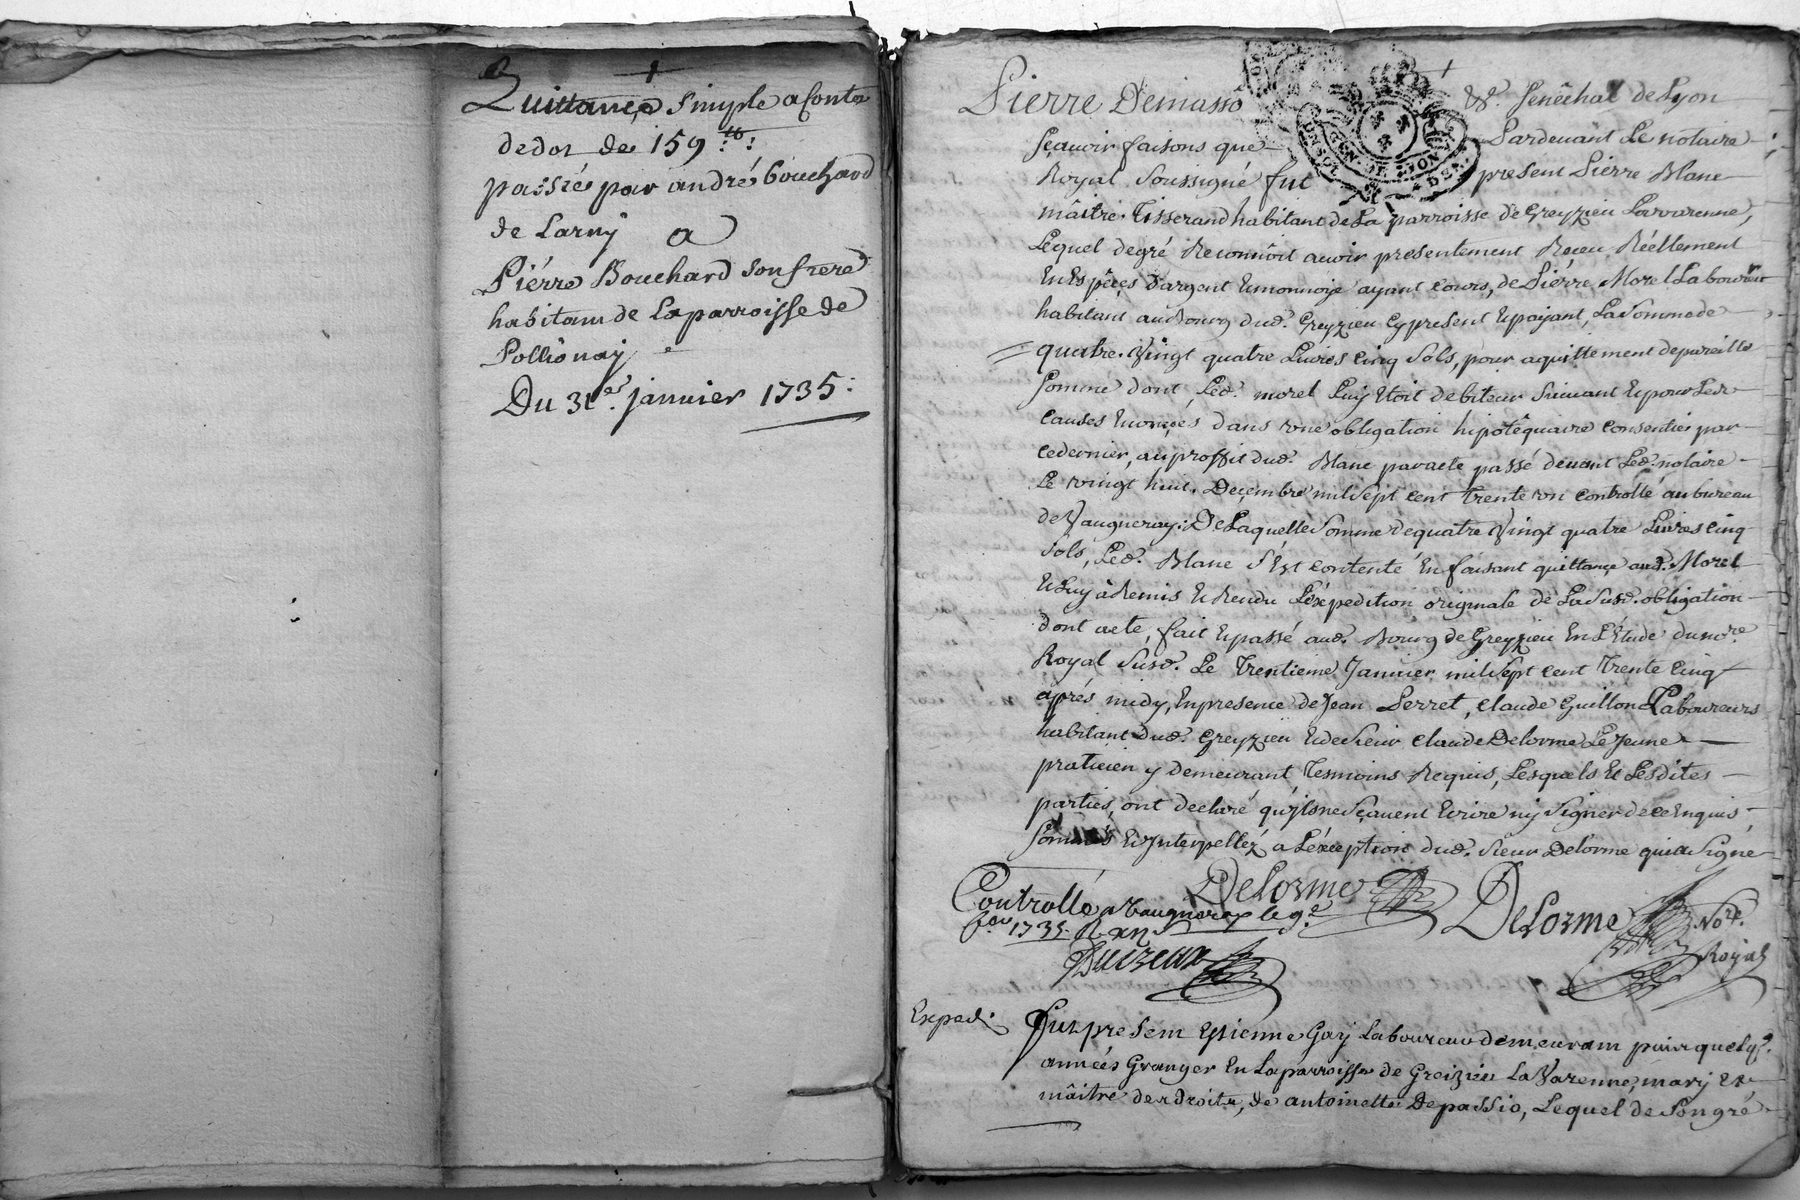 Quittance simple a conte
de dot de 159 ₶:
passée par andré bouchard
de Larny a
Piérre Bouchard son frere
habitant de La parroisse de
Pollionay
Du 31e. janvier 1735:
Pierre Demasso &c. Senêchal de Lyon
Sçavoir faisons que Pardevant Le notaire
Royal Soussigné fut present Pierre Blanc
mâitre Tisserand habitant de La parroisse de Greyzieu Lavarenne,
Lequel de gré Reconnôit avoir presentement Receu Réellement
En Espêces d'argent Et monnoye ayant cours, de Piérre Morel Laboureur
habitant au Bourg dud. Greyzieu Cy present Et payant, La Somme de
quatre Vingt quatre Livres cinq Sols, pour aquittement de pareille
Somme dont Led. morel Luy Etoit debiteur Suivant Et pour Les
causes Enoncées dans vne obligation hipotêquaire consentie par
ce dernier, au proffit dud. Blanc par acte passé devant Led. notaire
Le vingt huit Decembre mil Sept cent Trente vn controllé au bureau
de Vaugneray: De Laquelle Somme de quatre Vingt quatre Livres cinq
Sols, Led. Blanc S'Est contenté En faisant quittance aud. Morel
Et Luy à Remis Et Rendu L'éxpedition originale de La Susd. obligation
dont acte, fait Et passé aud. Bourg de Greyzieu En L'Etude du nore.
Royal Susd. Le Trentieme Janvier mil Sept cent Trente Cinq
aprés midy, En presence de Jean Perret, Claude Guillon Laboureurs
habitant dud. Greyzieu Et de Sieur Claude Delorme Le Jeune
praticien y demeurant, Tesmoins Requis, Lesquels Et Lesdites
parties, ont declaré qu'ils ne Sçavent Ecrire ny Signer de ce Enquis
Sommés Et Interpellez a L'éxception dud. Sieur Delorme qui a Signé
Delorme
Controllé a Vaugneray le 9e
DeLorme Nore.
feu 1735. R. xij s
Royal
Expedi.
Fut present Etienne Gay Laboureur demeurant puis quelqs.
années Granger En La parroisse de Greizieu La Varenne, mary Et
mâitre des droits, de antoinette Depassio, Lequel de Son gré